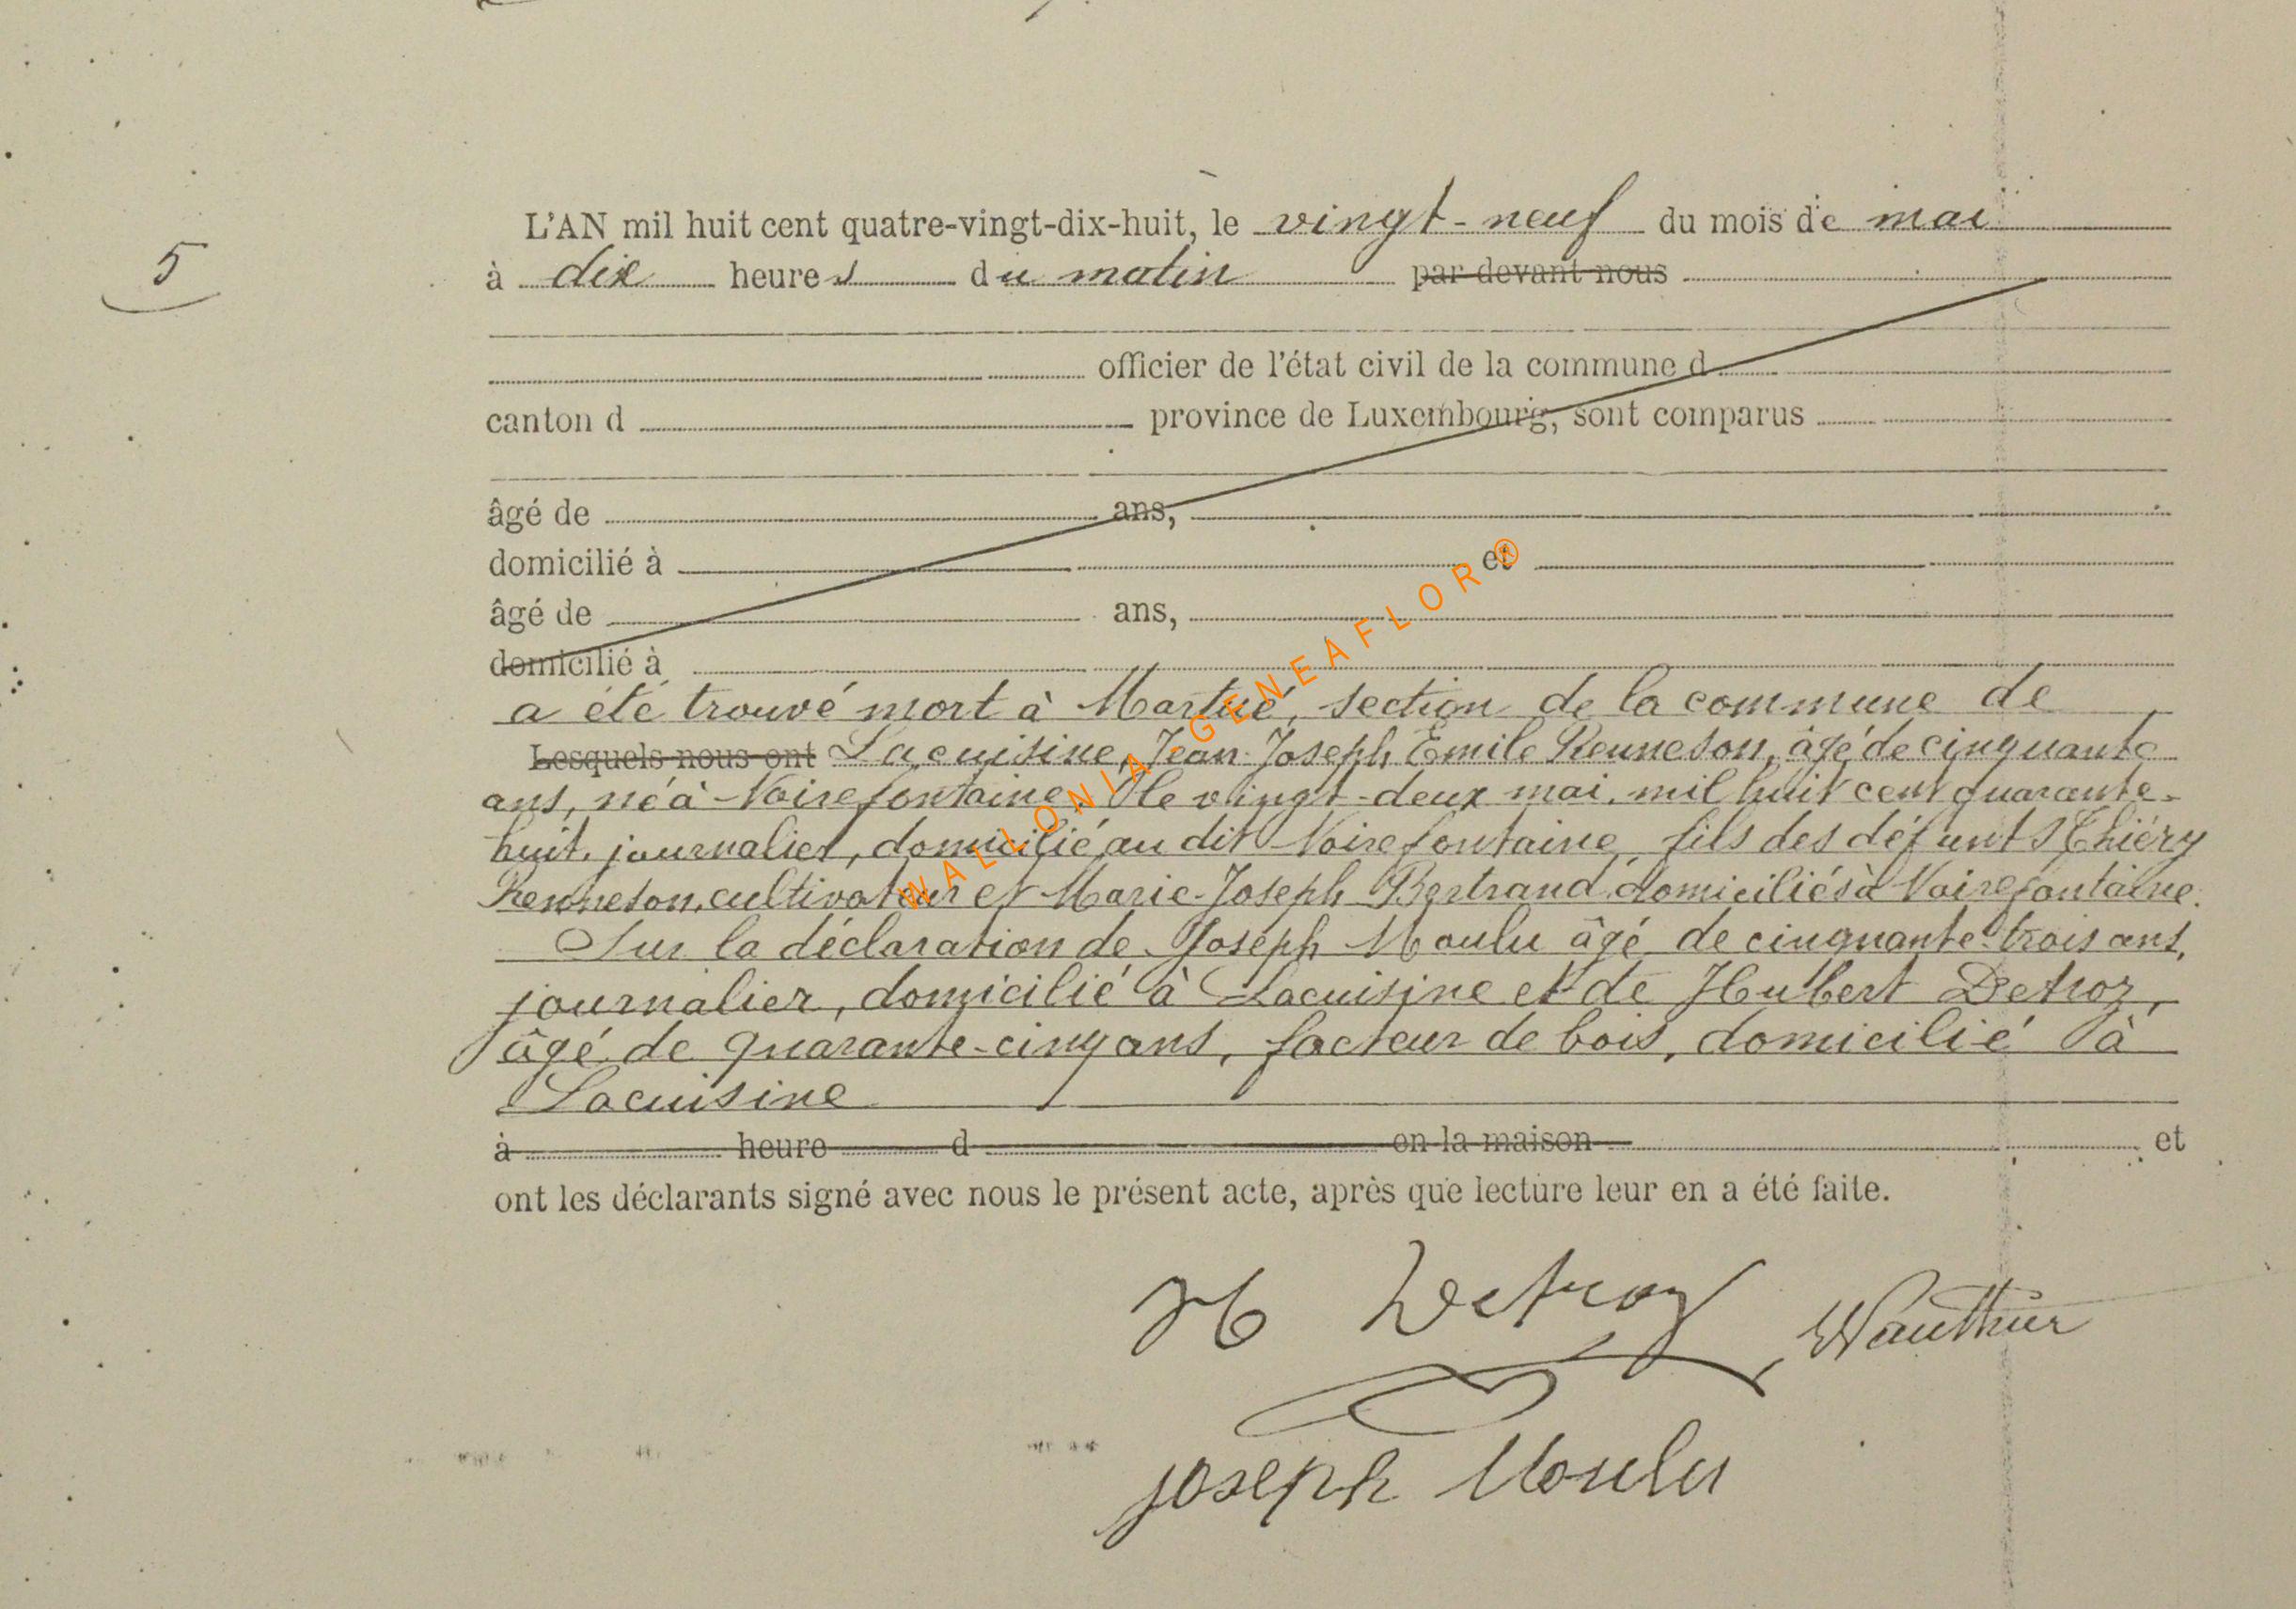 5
L'AN mil huit cent quatre-vingt-dix-huit, le vingt-neuf du mois de mai
à dix heures du matin par devant nous
officier de l'état civil de la commune d
canton d province de Luxembourg, sont comparus
âgé de ans,
domicilié à et
âgé de ans,
domicilié à
a été trouvé mort à Martué, section de la commune de
Lesquels nous ont Lacuisine, Jean-Joseph Emile Renneson, âgé de cinquante
ans, né à Noirefontaine, le vingt-deux mai, mil huit cent quarante-
huit, journalier, domicilié au dit Noirefontaine, fils des défunts Thiéry
Renneson, cultivateur et Marie-Joseph Bertrand, domiciliés à Noirefontaine.
Sur la déclaration de Joseph Moulu âgé de cinquante-trois ans,
journalier, domicilié à Lacuisine et de Hubert Detroz,
âgé de quarante-cinq ans, facteur de bois, domicilié à
Lacuisine
à heure d en la maison et
ont les déclarants signé avec nous le présent acte, après que lecture leur en a été faite.
H Detroz Wauthier
joseph Moulu
WALLONIA-GENEAFLOR®